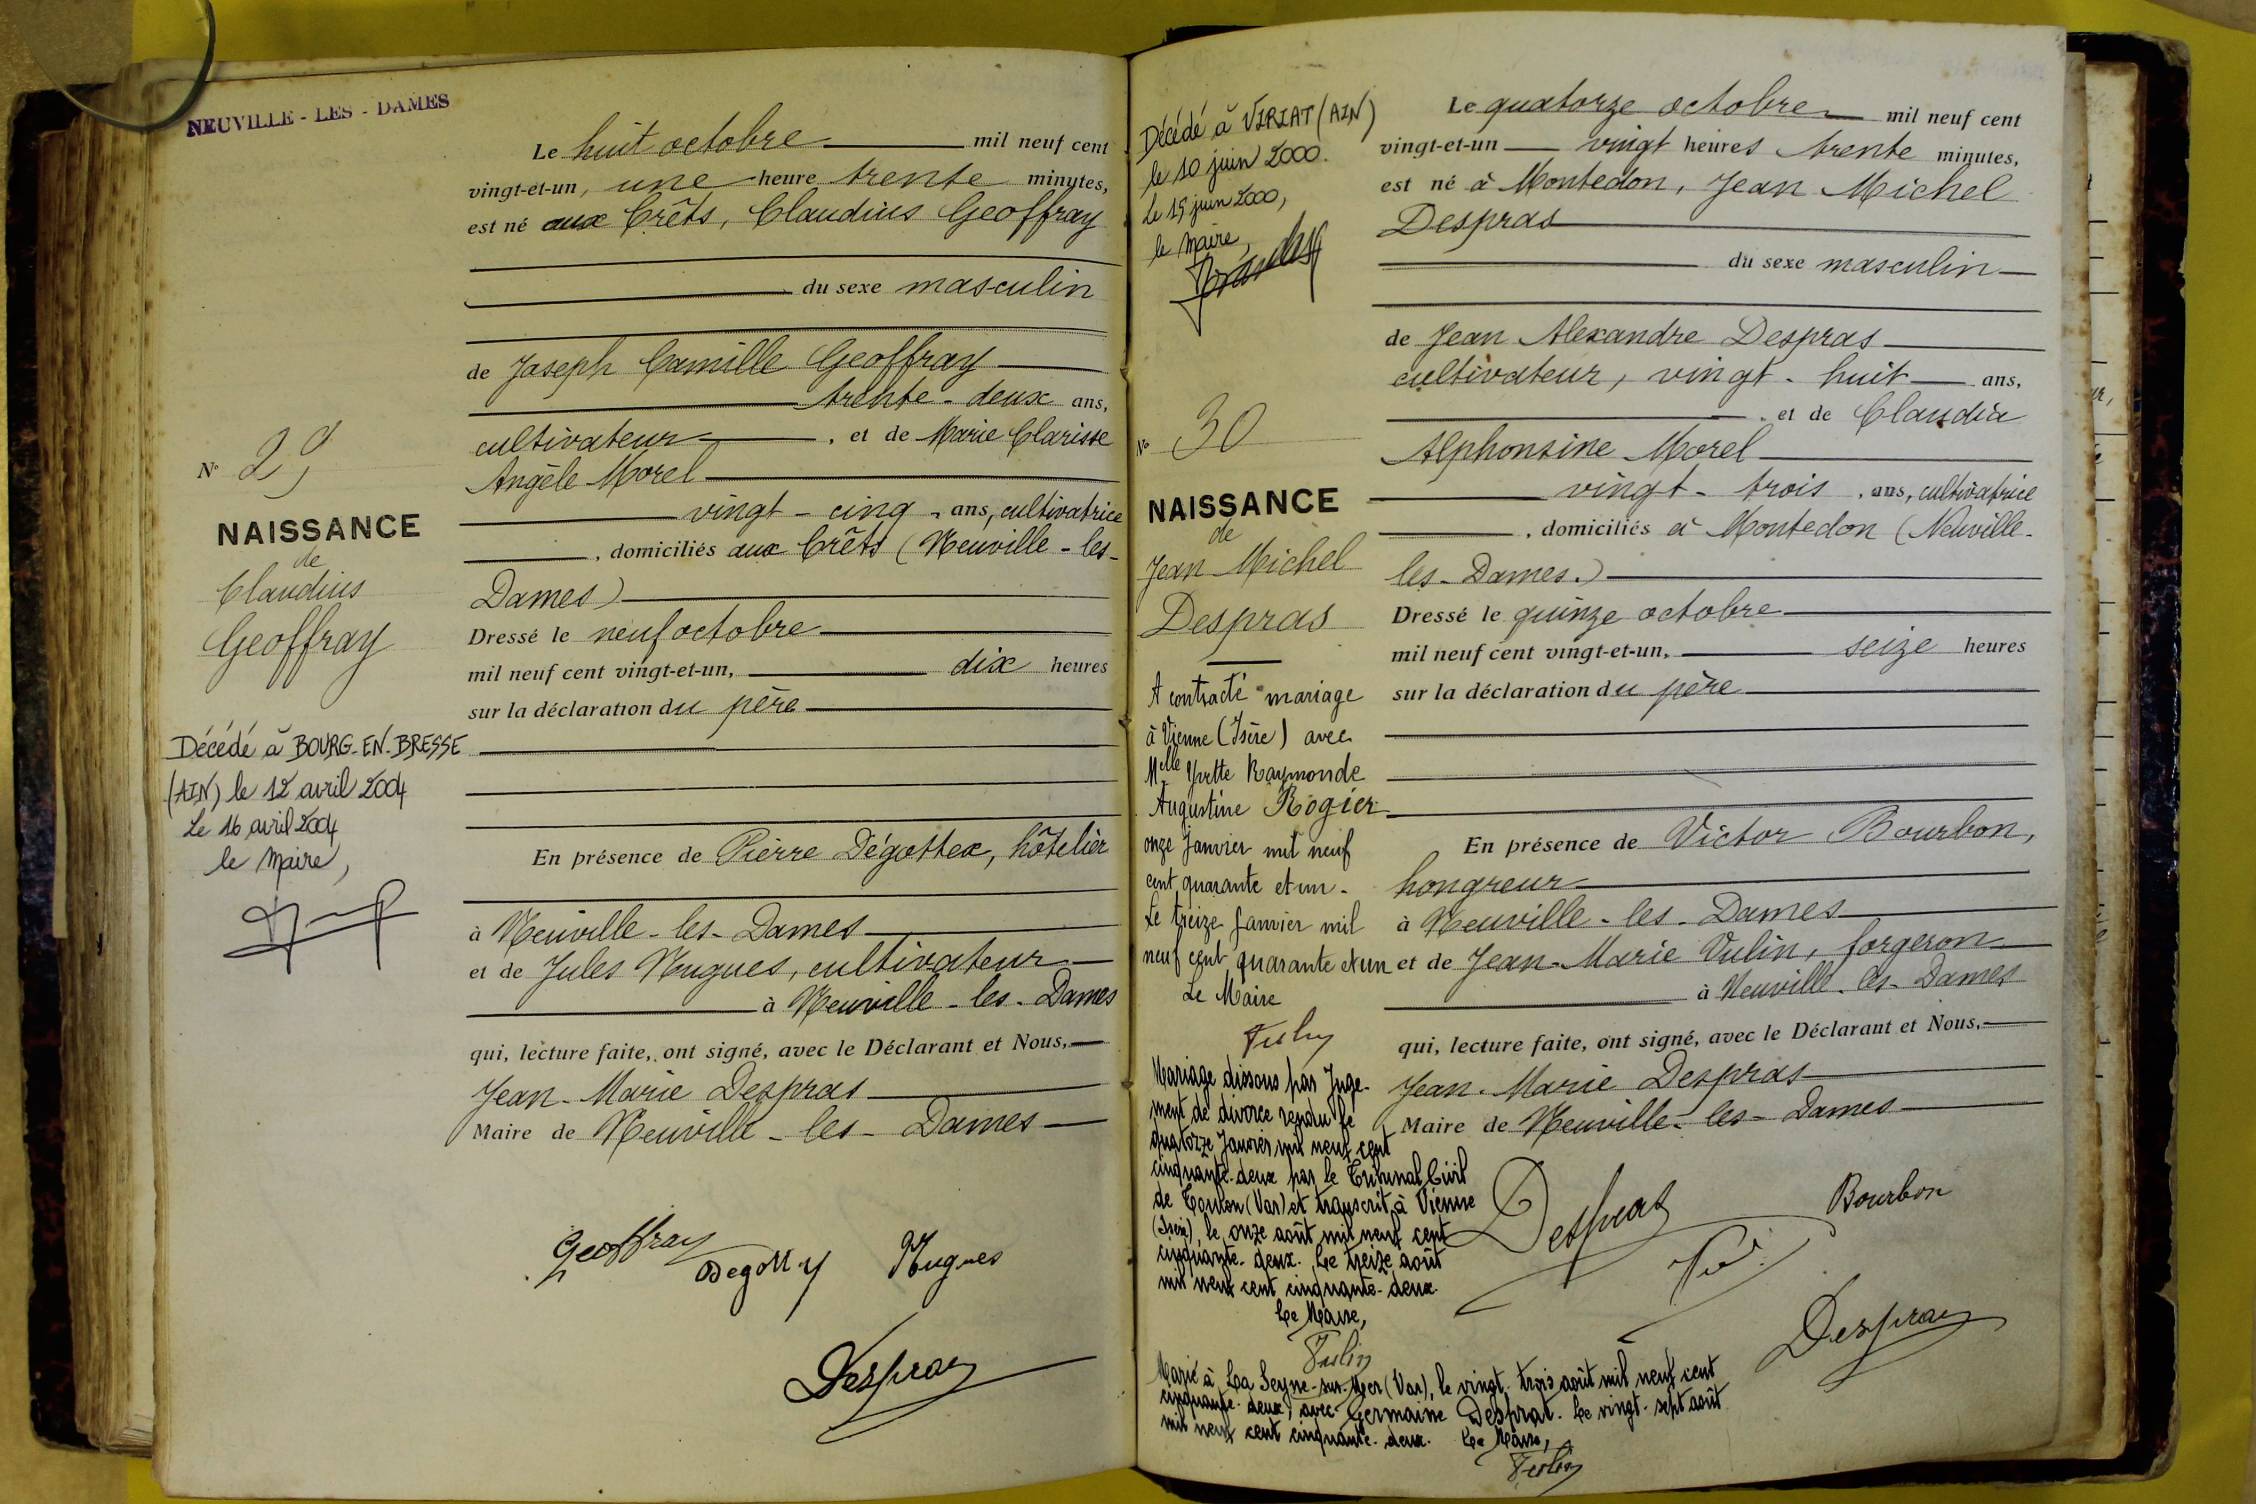 NEUVILLE - LES - DAMES
Le huit octobre mil neuf cent
vingt-et-un, une heure trente minutes,
est né aux Crêts, Claudius Geoffray
du sexe masculin
de Joseph Camille Geoffray
trente-deux ans,
cultivateur, et de Marie Clarisse
Angèle Morel
vingt-cinq ans, cultivatrice
, domiciliés aux Crêts (Neuville-les-
Dames)
Dressé le neuf octobre
mil neuf cent vingt-et-un, dix heures
sur la déclaration du père
En présence de Pierre Dégottex, hôtelier
à Neuville-les-Dames
et de Jules Hugues, cultivateur
à Neuville-les-Dames
qui, lecture faite, ont signé, avec le Déclarant et Nous,
Jean-Marie Despras
Maire de Neuville-les-Dames
Geoffray
Hugues
Despras
N° 29
NAISSANCE
de
Claudius
Geoffray
Décédé à BOURG-EN-BRESSE
(AIN) le 12 avril 2004
Le 16 avril 2004
le Maire,
Décédé à VIRIAT (AIN)
le 10 juin 2000.
Le 15 juin 2000,
le Maire,
N° 30
NAISSANCE
de
Jean Michel
Despras
A contracté mariage
à Vienne (Isère) avec
Melle Yvette Raymonde
Augustine Rogier
onze Janvier mil neuf
cent quarante et un.
Le treize Janvier mil
neuf cent quarante et un
Le Maire
Mariage dissous par Juge-
ment de divorce rendu le
quatorze Janvier mil neuf cent
cinquante-deux par le Tribunal Civil
de Toulon (Var) et transcrit à Vienne
(Isère), le onze août mil neuf cent
cinquante-deux. Le treize août
mil neuf cent cinquante-deux.
Le Maire,
Vulin
Marié à La Seyne-sur-Mer (Var), le vingt-trois août mil neuf cent
cinquante-deux, avec Germaine Desprat. Le vingt-sept août
mil neuf cent cinquante-deux. Le Maire,
Vulin
Le quatorze octobre mil neuf cent
vingt-et-un vingt heures trente minutes,
est né à Montedon, Jean Michel
Despras
du sexe masculin
de Jean Alexandre Despras
cultivateur, vingt-huit ans,
, et de Claudia
Alphonsine Morel
vingt-trois, ans, cultivatrice
, domiciliés à Montedon (Neuville-
les-Dames.)
Dressé le quinze octobre
mil neuf cent vingt-et-un, seize heures
sur la déclaration du père
En présence de Victor Bourbon,
hongreur
à Neuville-les-Dames
et de Jean-Marie Vulin, forgeron
à Neuville-les-Dames
qui, lecture faite, ont signé, avec le Déclarant et Nous,
Jean-Marie Despras
Maire de Neuville-les-Dames
Despras
Bourbon
Despras